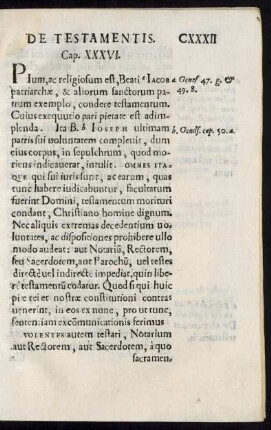 DE TESTAMENTIS. CXXXII
Cap. XXXVI.
PIum, ac religiosum est, Beati ª IACOB a. Genes. 47. g. &
patriarchæ, & aliorum sanctorum pa- 49. 8.
trum exemplo, condere testamentum.
Cuius exequutio pari pietate est adim-
plenda. Ita B. b IOSEPH ultimam b. Genes. cap. 50. a.
patris sui voluntatem complevit, dum
eius corpus, in sepulchrum, quod mo-
riens indicauerat, intulit. OMNES ITA-
QVE qui sui iuris sunt, ac earum, quas
tunc habere iudicabuntur, facultatum
fuerint Domini, testamentum morituri
condant, Christiano homine dignum.
Nec aliquis extremas decedentium uo-
luntates, ac dispositiones prohibere ullo
modo audeat; aut Notariũ, Rectorem,
seu Sacerdotem, aut Parochũ, uel testes
directè uel indirectè impediat, quin libe-
rè testamentũ cõdatur. Quod si qui huic
piæ rei et nostræ constitutioni contra
uenerint, in eos ex nunc, pro ut tunc,
sententiam excõmunicationis ferimus
VOLENTES autem testari, Notarium
aut Rectorem, aut Sacerdotem, à quo
sacramen-